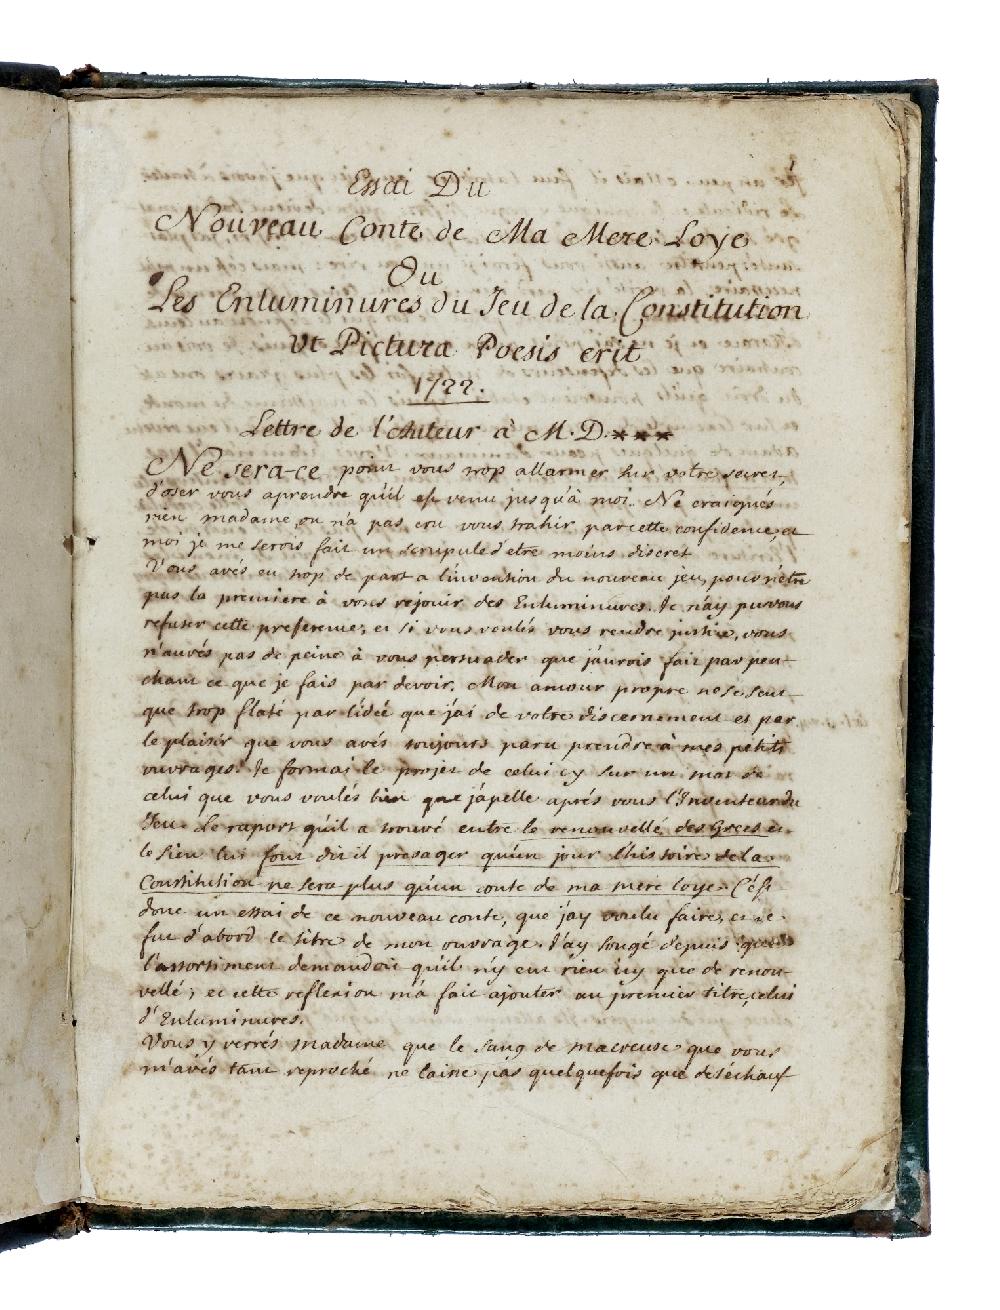 Essai Du
Nouveau Conte de Ma Mere Loye
Ou
Les Enluminures du Jeu de la Constitution
Ut Pictura Poesis erit
1722.
Lettre de l'Auteur à M. D.***
Ne sera-ce point vous trop allarmer sur votre secret,
d'oser vous aprendre qu'il est venu jusqu'à moi. Ne craignés
rien madame, on n'a pas cru vous trahir par cette confidence, et
moi je me serois fait un scrupule d'etre moins discret
Vous avés eu trop de part a l'invention du nouveau jeu, pour n'etre
pas la premiere à vous rejouir des Enluminures. Je n'ay pu vous
refuser cette preference, et si vous voulés vous rendre justice, vous
n'aurés pas de peine à vous persuader que j'aurois fait par pen-
chant ce que je fais par devoir. Mon amour propre ne se sent
que trop flaté par l'idée que j'ai de votre discernement et par
le plaisir que vous avés toujours paru prendre à mes petits
ouvrages. Je formai le projet de celui cy sur un mot de
celui que vous voulés bien que j'apelle aprés vous l'Inventeur du
Jeu. Le raport qu'il a trouvé entre le renouvellé des Grecs et
le sien lui font dit il presager qu'un jour l'histoire de la
Constitution ne sera plus qu'un conte de ma mere loye. C'est
donc un essai de ce nouveau conte, que j'ay voulu faire, et ce
fut d'abord le titre de mon ouvrage. J'ay songé depuis que
l'assortiment demandoit qu'il n'y eut rien icy que de renou-
vellé; et cette reflexion m'a fait ajouter au premier titre, celui
d'Enluminures.
Vous y verrés madame que le sang de macreuse que vous
m'avés tant reproché ne laisse pas quelquefois que de s'échauf